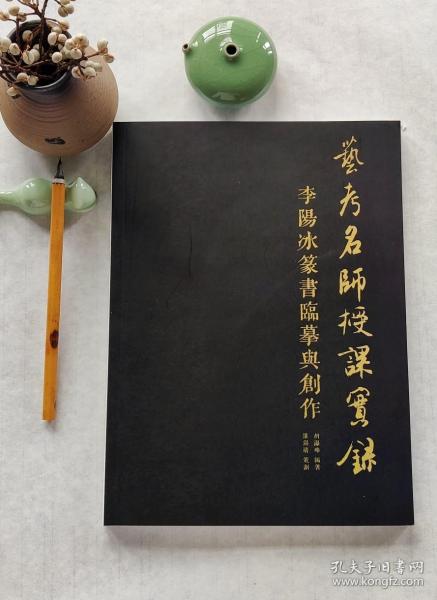 藝考名師授課實錄
李陽冰篆書臨摹與創作
編著
策劃
孔夫子旧书网
www.kongfz.com